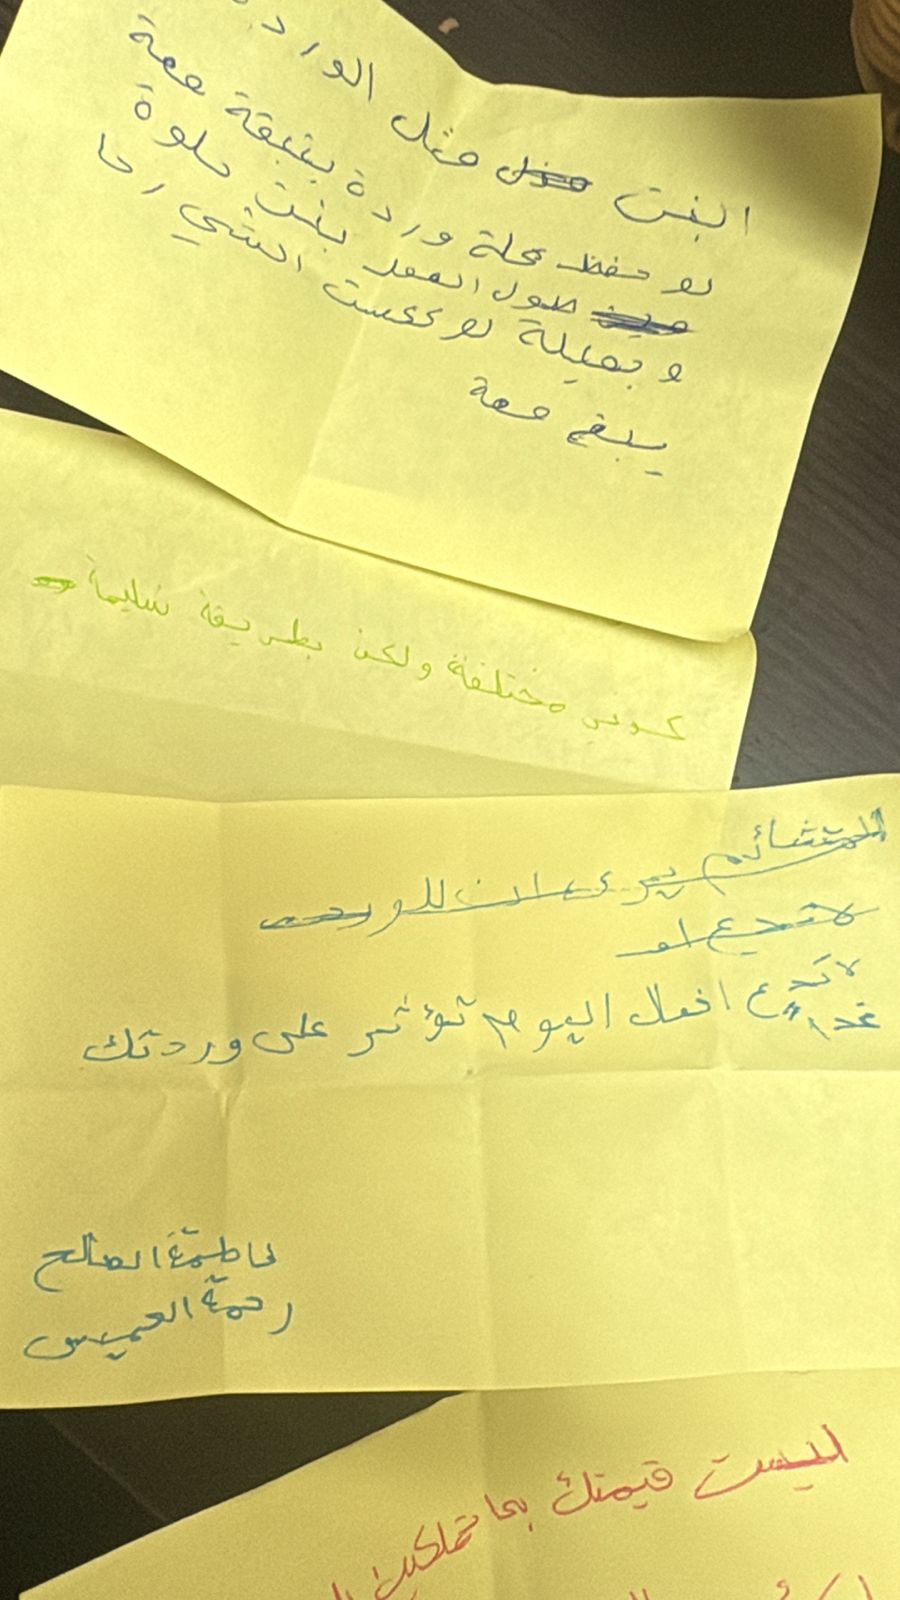 البنت مثل الوارد
لو حفظ علة وردة بتبقة معة
طول العمر بنت حلوة
و بعيلة لو عكست الشي راحا
يبقى معة
كوني مختلفة ولكن بطريقة سليمة
المتشائم يرى ان للورد
لا تدع ا
لا تدع افعال اليوم تؤثر على وردتك
غدا
فاطمة الصالح
رحمة العميس
ليست قيمتك بما تملكين